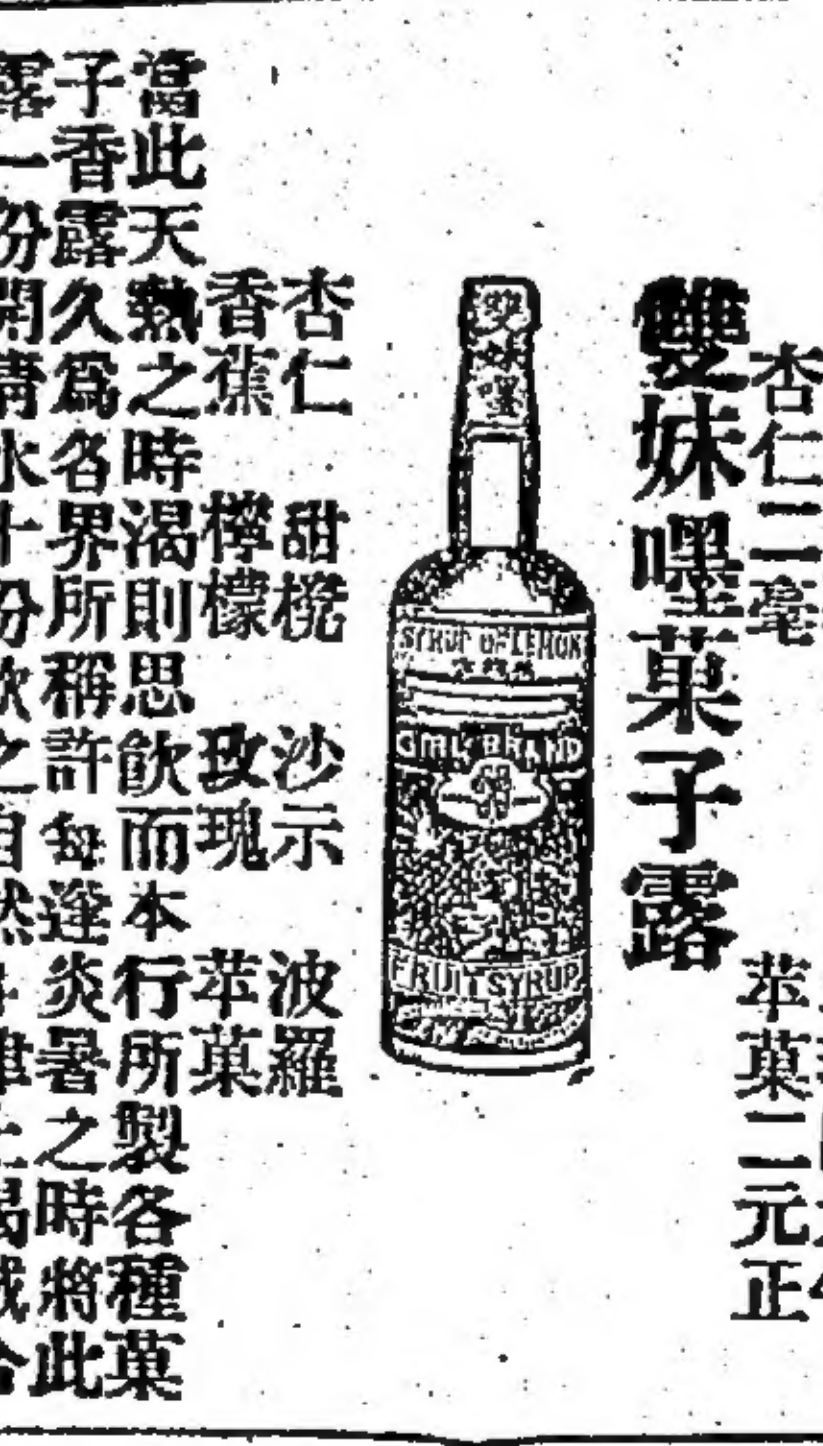 杏仁二毫
苹菓二元正
雙妹嘜菓子露
雙妹嘜
SYRUP OF LEMON
GIRL BRAND
FRUIT SYRUP
杏仁 甜橙 沙示 波羅
香蕉 檸檬 玫瑰 苹菓
當此天熱之時渴則思飲而本行所製各種菓
子香露久爲各界所稱許每逢炎暑之時將此
露一份開清水十份飲之自然生津止渴